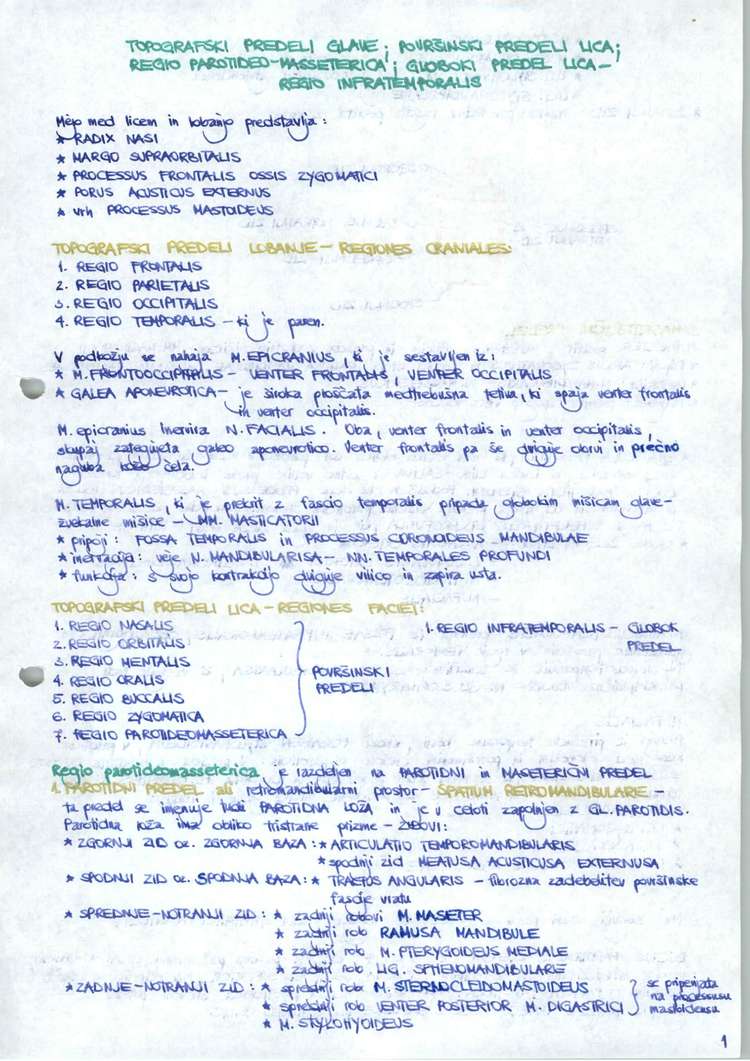 TOPOGRAFSKI PREDELI GLAVE; POVRŠINSKI PREDELI LICA;
REGIO PAROTIDEO-MASSETERICA; GLOBOKI PREDEL LICA –
REGIO INFRATEMPORALIS
Mejo med licem in lobanjo predstavlja:
* RADIX NASI
* MARGO SUPRAORBITALIS
* PROCESSUS FRONTALIS OSSIS ZYGOMATICI
* PORUS ACUSTICUS EXTERNUS
* vrh PROCESSUS MASTOIDEUS
TOPOGRAFSKI PREDELI LOBANJE – REGIONES CRANIALES:
1. REGIO FRONTALIS
2. REGIO PARIETALIS
3. REGIO OCCIPITALIS
4. REGIO TEMPORALIS – ki je paren.
V podkožju se nahaja M. EPICRANIUS, ki je sestavljen iz:
* M. FRONTOOCCIPITALIS – VENTER FRONTALIS, VENTER OCCIPITALIS
* GALEA APONEUROTICA – je široka ploščata medtrebušna tetiva, ki spaja venter frontalis
in venter occipitalis.
M. epicranius inervira N. FACIALIS. Oba, venter frontalis in venter occipitalis,
skupaj zategujeta galeo aponeurotico. Venter frontalis pa še dviguje obrvi in prečno
naguba kožo čela.
M. TEMPORALIS, ki je prekrit z fascio temporalis pripada globokim mišicam glave –
žvekalne mišice – MM. MASTICATORII
* pripoji: FOSSA TEMPORALIS in PROCESSUS CORONOIDEUS MANDIBULAE
* inervacija: veje N. MANDIBULARISA – NN. TEMPORALES PROFUNDI
* funkcija: s svojo kontrakcijo dviguje vilico in zapira usta.
TOPOGRAFSKI PREDELI LICA – REGIONES FACIEI:
1. REGIO NASALIS
2. REGIO ORBITALIS
3. REGIO MENTALIS
4. REGIO ORALIS
5. REGIO BUCCALIS
6. REGIO ZYGOMATICA
7. REGIO PAROTIDEOMASSETERICA
POVRŠINSKI
PREDELI
1. REGIO INFRATEMPORALIS – GLOBOK
PREDEL
Regio parotideomasseterica je razdeljen na PAROTIDNI in MASETERIČNI PREDEL
1. PAROTIDNI PREDEL ali retromandibularni prostor – SPATIUM RETROMANDIBULARE –
ta predel se imenuje tudi PAROTIDNA LOŽA in je v celoti zapolnjen z GL. PAROTIDIS.
Parotidna loža ima obliko tristrane prizme – ZIDOVI:
* ZGORNJI ZID oz. ZGORNJA BAZA: * ARTICULATIO TEMPOROMANDIBULARIS
* spodnji zid MEATUSA ACUSTICUSA EXTERNUSA
* SPODNJI ZID oz. SPODNJA BAZA: * TRAKTUS ANGULARIS – fibrozna zadebelitev površinske
fascije vratu
* SPREDNJE-NOTRANJI ZID: * zadnji robovi M. MASETER
* zadnji rob RAMUSA MANDIBULE
* zadnji rob M. PTERYGOIDEUS MEDIALE
* zadnji rob LIG. SPHENOMANDIBULARE
* ZADNJE-NOTRANJI ZID: * sprednji rob M. STERNOCLEIDOMASTOIDEUS
* sprednji rob VENTER POSTERIOR M. DIGASTRICI
* M. STYLOHYOIDEUS
se pripenjata
na processusu
mastoideusu
1